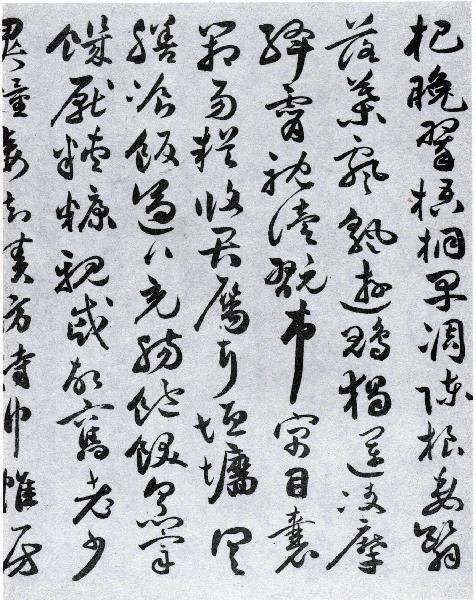 杷晚翠梧桐早凋陳根委翳
落葉飄颻遊鵾獨運凌摩
絳霄耽讀翫市寓目囊
箱易輶攸畏屬耳垣墻具
膳飡飯適口充腸飽飫烹宰
飢厭糟糠親戚故舊老少
異糧妾御績紡侍巾帷房